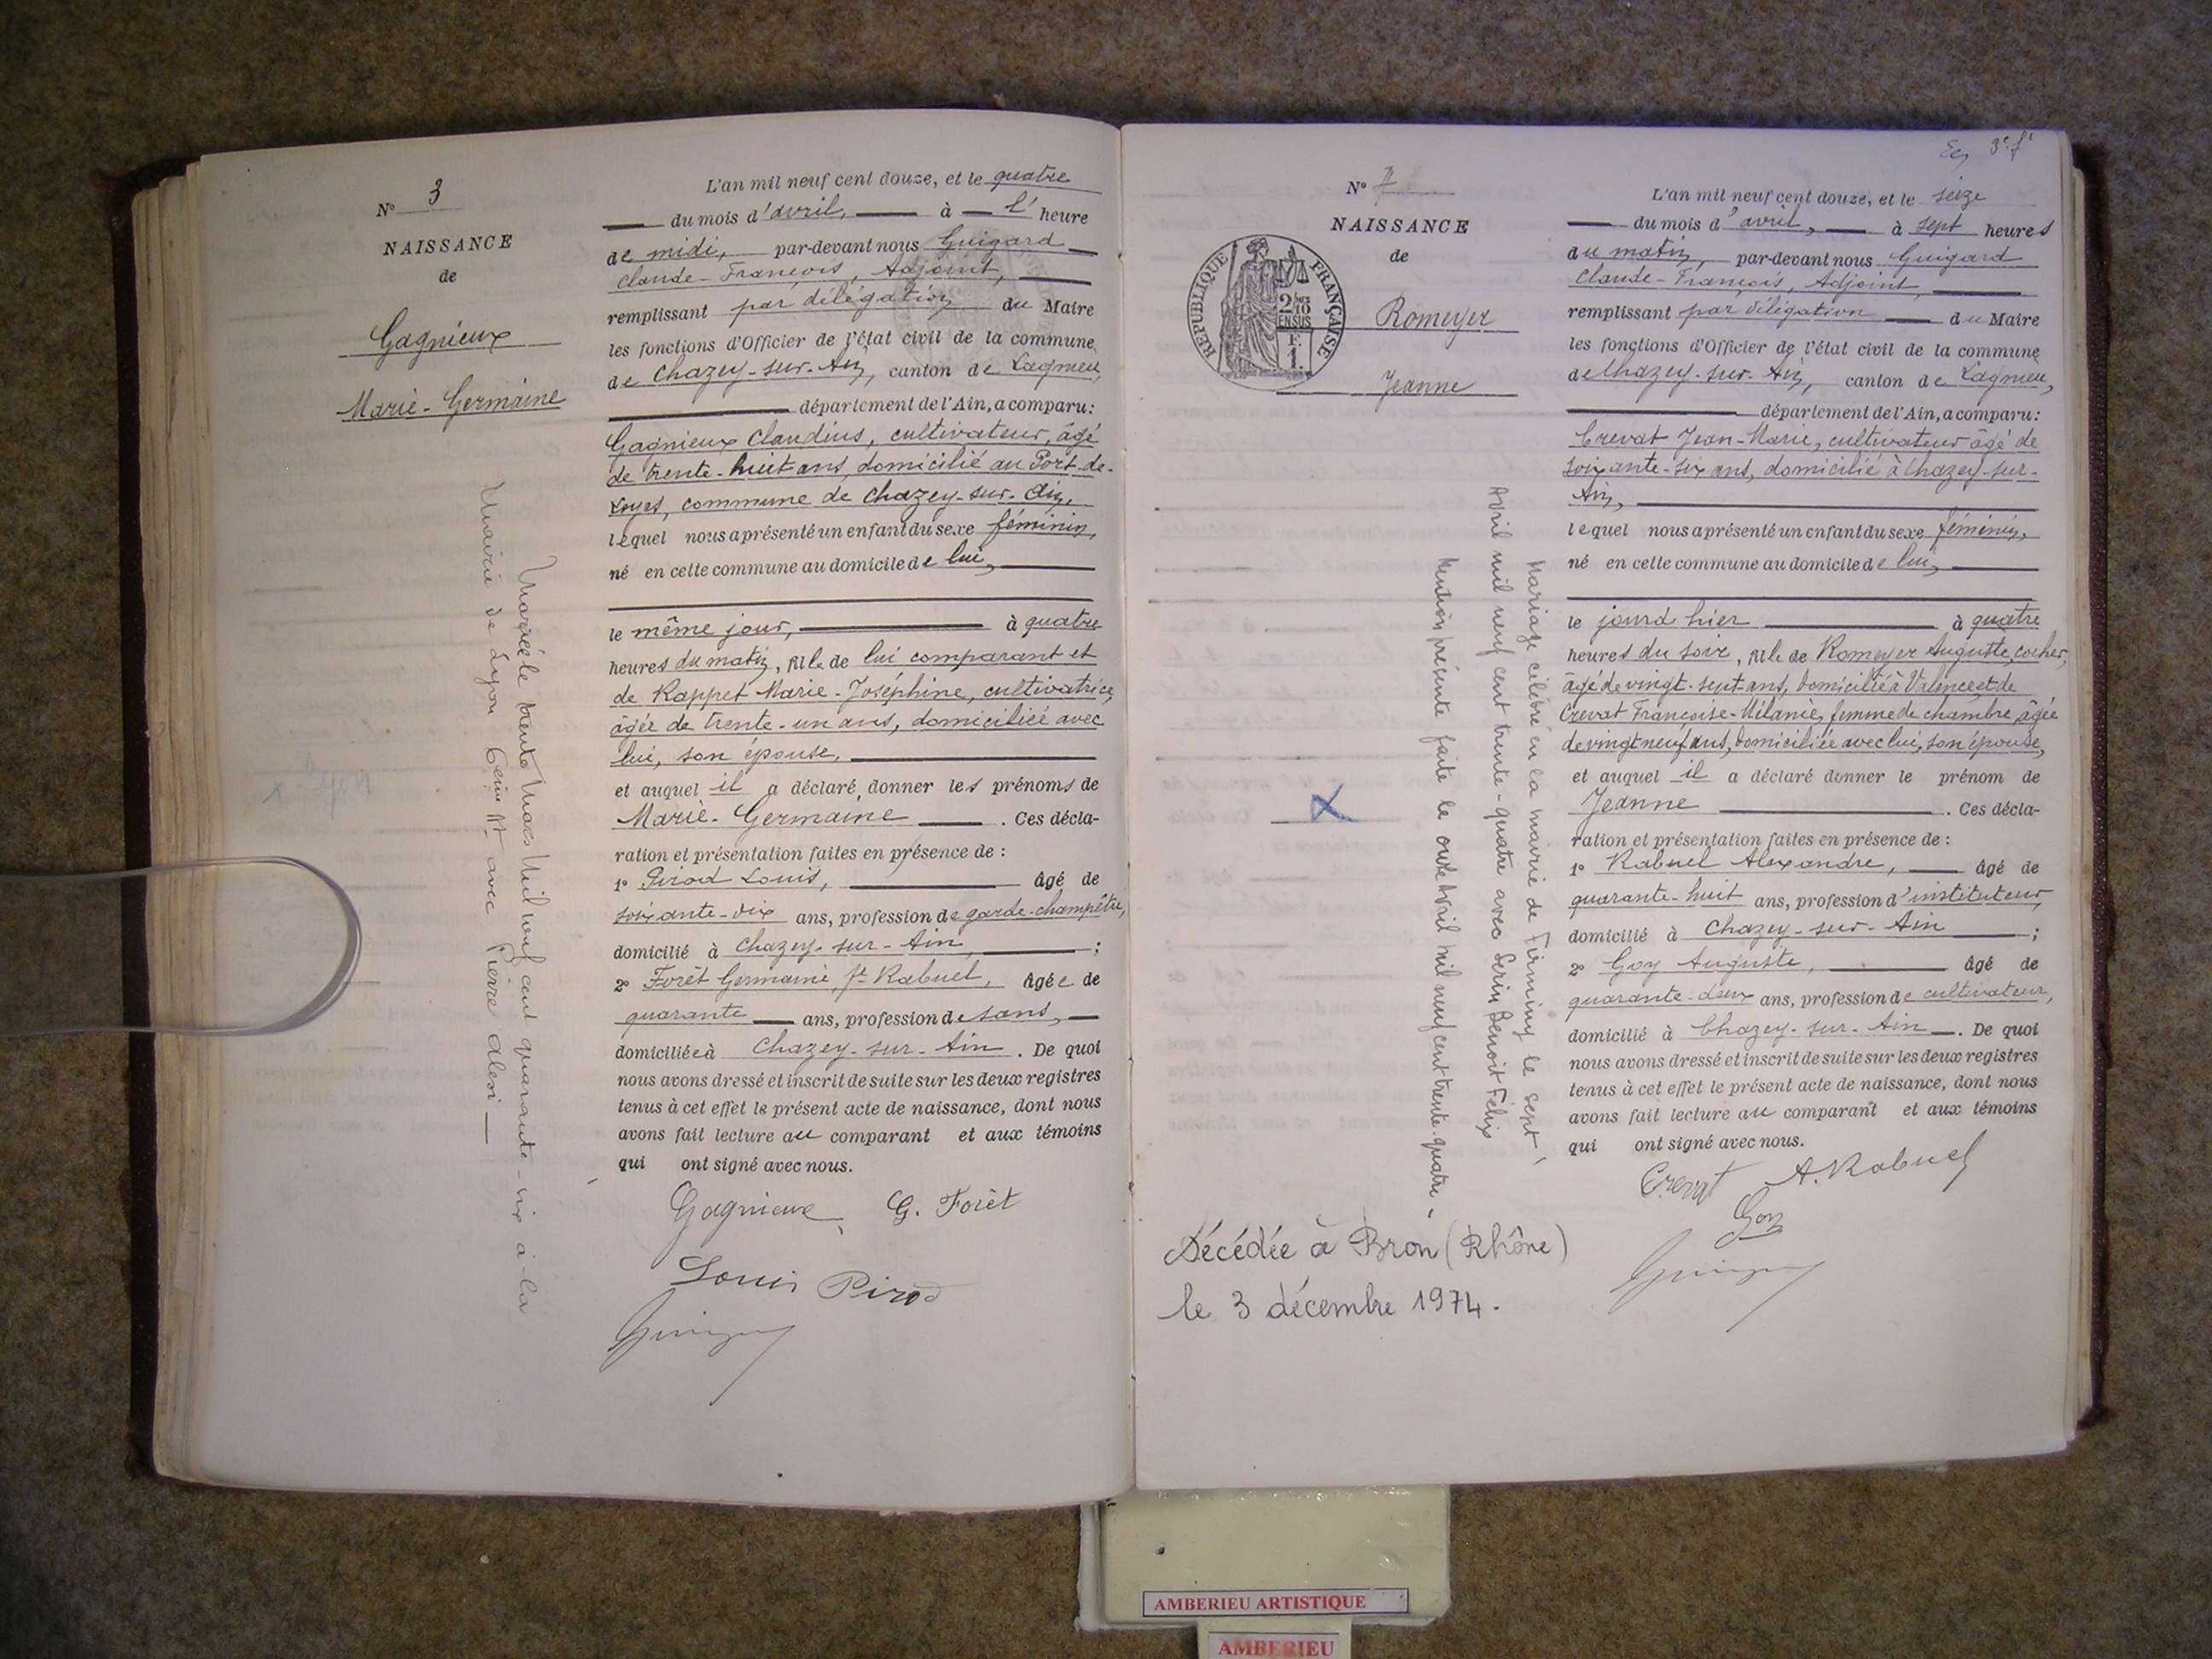 Nº 3
NAISSANCE
de
Gagnieux
Marie-Germaine
Mariée le trente Mars Mil neuf cent quarante-six à la
Mairie de Lyon 6eme Art avec Pierre Alesi
L'an mil neuf cent douze, et le quatre
du mois d'avril, à l'heure
de midi, par-devant nous Guigard
Claude-François, Adjoint,
remplissant par délégation du Maire
les fonctions d'Officier de l'état civil de la commune
de Chazey-sur-Ain, canton de Lagnieu,
département de l'Ain, a comparu:
Gagnieux Claudius, cultivateur, âgé
de trente-huit ans, domicilié au Port-de-
Loyes, commune de Chazey-sur-Ain,
lequel nous a présenté un enfant du sexe féminin,
né en cette commune au domicile de lui,
le même jour, à quatre
heures du matin, fille de lui comparant et
de Rappet Marie-Joséphine, cultivatrice,
âgée de trente-un ans, domiciliée avec
lui, son épouse,
et auquel il a déclaré donner les prénoms de
Marie-Germaine. Ces décla-
ration et présentation faites en présence de :
1º Pirod Louis, âgé de
soixante-dix ans, profession de garde-champêtre,
domicilié à Chazey-sur-Ain, ;
2º Forêt Germaine, fe Rabuel, âgée de
quarante ans, profession de sans,
domiciliée à Chazey-sur-Ain. De quoi
nous avons dressé et inscrit de suite sur les deux registres
tenus à cet effet le présent acte de naissance, dont nous
avons fait lecture au comparant et aux témoins
qui ont signé avec nous.
Gagnieux G. Forêt
Louis Pirod
3e ft
Nº
NAISSANCE
de
Romeyer
Jeanne
RÉPUBLIQUE FRANÇAISE
2/10
EN SUS
F.
1.
Mariage célébré en la mairie de Firminy le sept
Avril mil neuf cent trente-quatre avec Serin Benoit Félix
Mention présente faite le onze Avril mil neuf cent trente-quatre
Décédée à Bron (Rhône)
le 3 décembre 1974.
L'an mil neuf cent douze, et le seize
du mois d'avril, à sept heures
du matin, par-devant nous Guigard
Claude-François, Adjoint,
remplissant par délégation du Maire
les fonctions d'Officier de l'état civil de la commune
de Chazey-sur-Ain, canton de Lagnieu,
département de l'Ain, a comparu:
Crevat Jean-Marie, cultivateur âgé de
soixante-six ans, domicilié à Chazey-sur-
Ain,
lequel nous a présenté un enfant du sexe féminin,
né en cette commune au domicile de lui,
le jourd'hier à quatre
heures du soir, fille de Romeyer Auguste, cocher,
âgé de vingt-sept ans, domicilié à Valence et de
Crevat Françoise-Mélanie, femme de chambre, âgée
de vingt neuf ans, domiciliée avec lui, son épouse,
et auquel il a déclaré donner le prénom de
Jeanne. Ces décla-
ration et présentation faites en présence de :
1º Rabuel Alexandre, âgé de
quarante-huit ans, profession d'instituteur
domicilié à Chazey-sur-Ain ;
2º Goy Auguste, âgé de
quarante-deux ans, profession de cultivateur,
domicilié à Chazey-sur-Ain. De quoi
nous avons dressé et inscrit de suite sur les deux registres
tenus à cet effet le présent acte de naissance, dont nous
avons fait lecture au comparant et aux témoins
qui ont signé avec nous.
Crevat A. Rabuel
Goy
AMBERIEU ARTISTIQUE
AMBERIEU